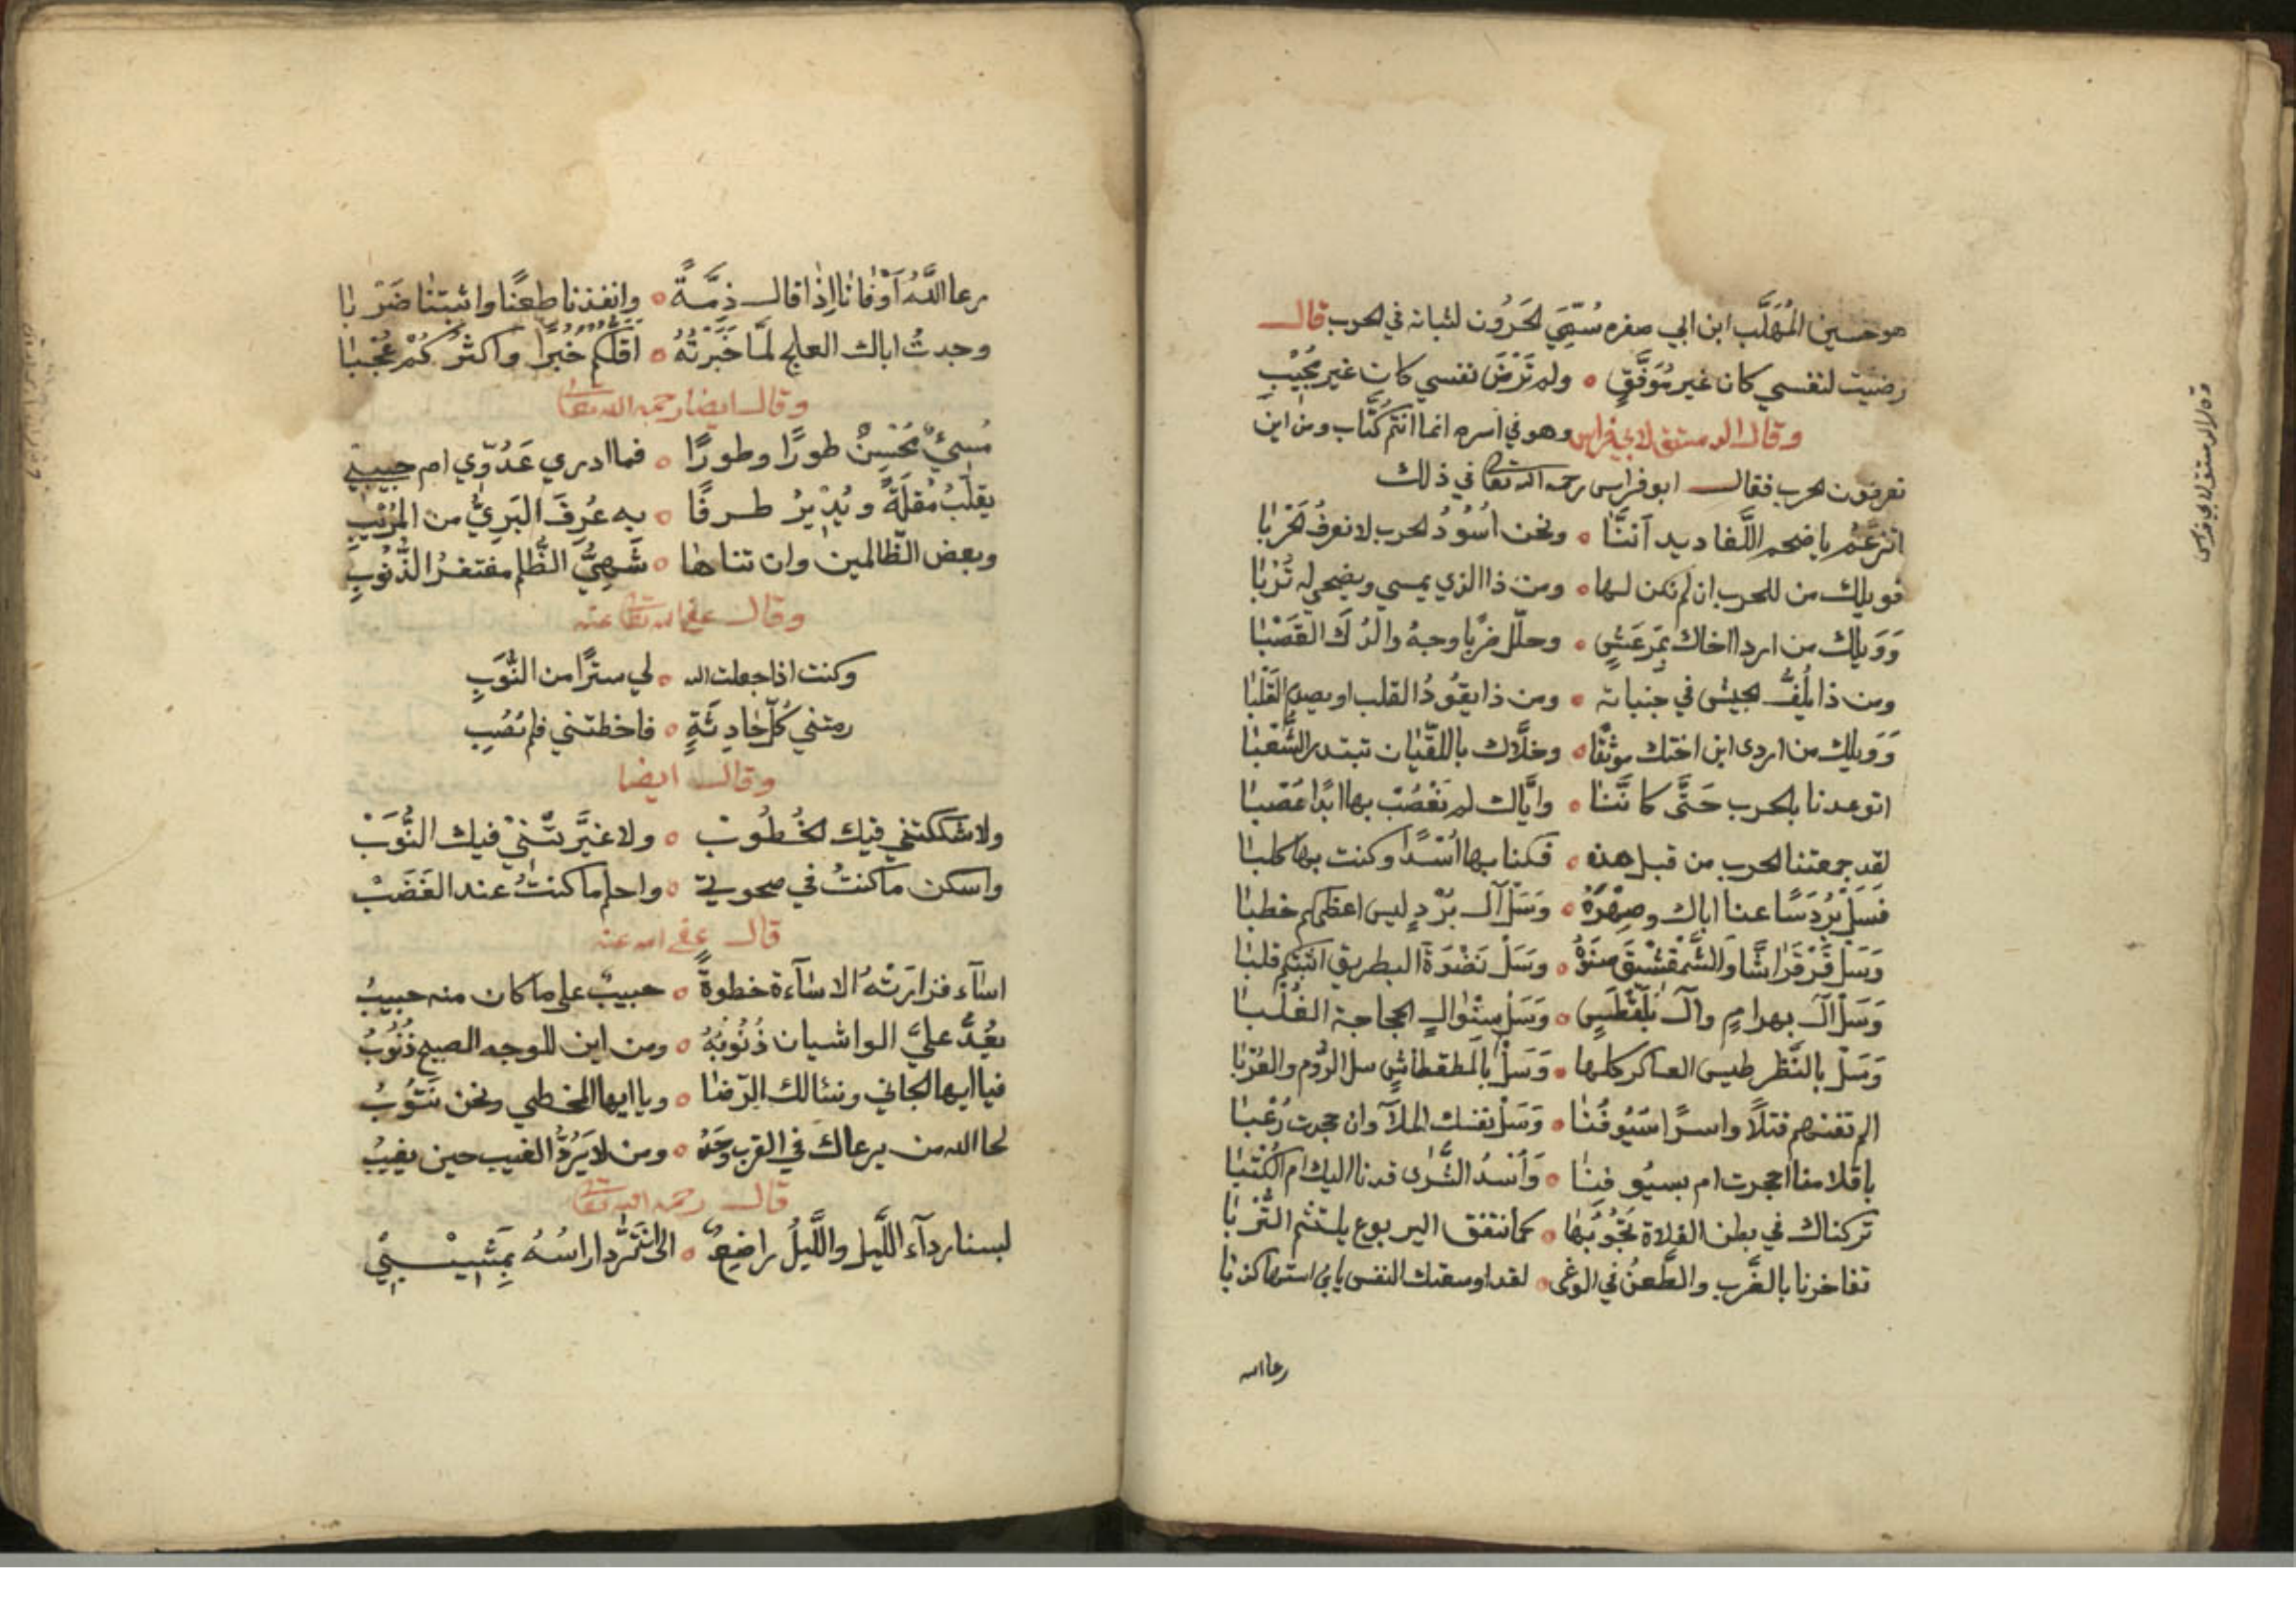 هو حسين المُهَلَّب ابن ابي صفره سُمِّيَ الحَرُون لثباته في الحرب قال
رضيت لنفسي كان غير مُوَفَّقٍ ٥ ولم تَرْضَ نفسي كان غير مُجِيْبِ
وقال الدمستق لابي فراس وهو في اسره انما انتم كُتَّاب ومن اين
تعرفون الحرب فقال ابو فراس رحمه الله تعالى في ذلك
اتزعَمُ يا ضخم اللَّغاديد اَننَّا ٥ ونحن اُسُوْدُ الحرب لا نعرفُ الحَرْبا
فويلك من للحرب ان لم نكن لها ٥ ومن ذا الذي يمسي ويضحي له تُرْبا
وَوَيلك من اردا اخاك بِمَرعَشٍ ٥ وحلّل ضربا وجهُ والدك القَضبا
ومن ذا يلُفُّ الجيش في جنباته ٥ ومن ذا يقُودُ القلب او يصدم القَلْبا
وَوَيلك من اردى ابن اختك موثقًا ٥ وخلَّاك باللقّان تبتدر الشَّعْبا
اتوعدنا بالحرب حَتَّى كانَّنا ٥ وايَّاك لم نَعْصُبْ بها ابدًا عَصْبا
لقد جمعتنا الحرب من قبل هذه ٥ فكنا بها اُسْدًا وكنت بها كلبا
فَسَلْ بَرْدَسًا عنا اباك وصِهْرَهُ ٥ وَسَلْ آل بَرْدٍ ليس اعظكم خطبا
وَسَلْ قَرْقَراشًا والشَّمْقشيقَ صنوَهُ ٥ وَسَلْ نَضْوَةَ البطريق اثبتكم قلبا
وَسَلْ آل بهرامٍ وآل بَلَنْطَسٍ ٥ وَسَلْ مِنْوالٍ الجحاجحة الغُلْبا
وَسَلْ بالنَّظر طيس العساكر كلها ٥ وَسَلْ بالمطقطاشِ سل الرُّوم والعُرْبا
الم تفنهم قتلًا واسرًا سُيُوفُنا ٥ وَسَلْ نفسك الملآ وان حجرت رُعْبا
باقلامنا احجرت ام بسيُوفنا ٥ وَأُسْدُ الشَّرى قدنا اليك ام الكُتْبا
تركناك في بطن الفلاة تجُوبُها ٥ كما نتفق اليربوع يلتثم التُّرْبا
تفاخرنا بالضَّرب والطَّعن في الوغى ٥ لقد اوسعتك النفس يا بن استها كذبا
رعا الله
رعا اللَّهُ اَوْفانا اِذا قال ذِمَّةً ٥ وانفذنا طعنًا واثبتنا ضَرْبا
وجدتُ اباك العلج لمَّا خَبَرْتُهُ ٥ اقلّكم خُبرًا واكثرُكُمْ عُجْبا
وقال ايضا رحمه الله تعالى
مُسيئٌ مُحْسِنٌ طورًا وطورًا ٥ فما ادري عَدُوّي ام حبيبي
يقلّبُ مُقلَةً ويُدْيرُ طرفًا ٥ به عُرِفَ البَرِيُّ من المُرِيْبِ
وبعض الظّالمين وان تناها ٥ شَهِيُّ الظُّلم مفتفرُ الذُّنُوبِ
وقال عفى الله تعالى عنه
وكنت اذا جعلت الله ٥ لي سترًا من النُّوَبِ
رمتني كُلّ حادِثَةٍ ٥ فاخطتني فلم تُصِبِ
وقال ايضا
ولا شككتني فيك الخُطُوبْ ٥ ولا غيَّرتّنيْ فيك النُّوَبْ
واسكن ما كنتُ في صحوتي ٥ واحلم ما كنتُ عند الغَضَبْ
قال عفى الله عنه
اسآء فزادَتْهُ الاسآءة خطوةً ٥ حبيبٌ على ما كان منه حبيبُ
يعُدُّ عليَّ الواشيان ذُنُوبَهُ ٥ ومن اين للوجه الصبيح ذُنُوبُ
فيا ايها الجاني ونسالك الرّضا ٥ ويا ايها المخطي ونحن نَتُوبُ
لحا الله من يرعاك في القرب وحدهُ ٥ ومن لا يَرُدُّ الغيب حين يغيبُ
قال رحمه الله تعالى
لبسنا ردآء اللَّيل واللَّيلُ راضِعٌ ٥ الى ان تردا راسُهُ بِمَشِيْبي